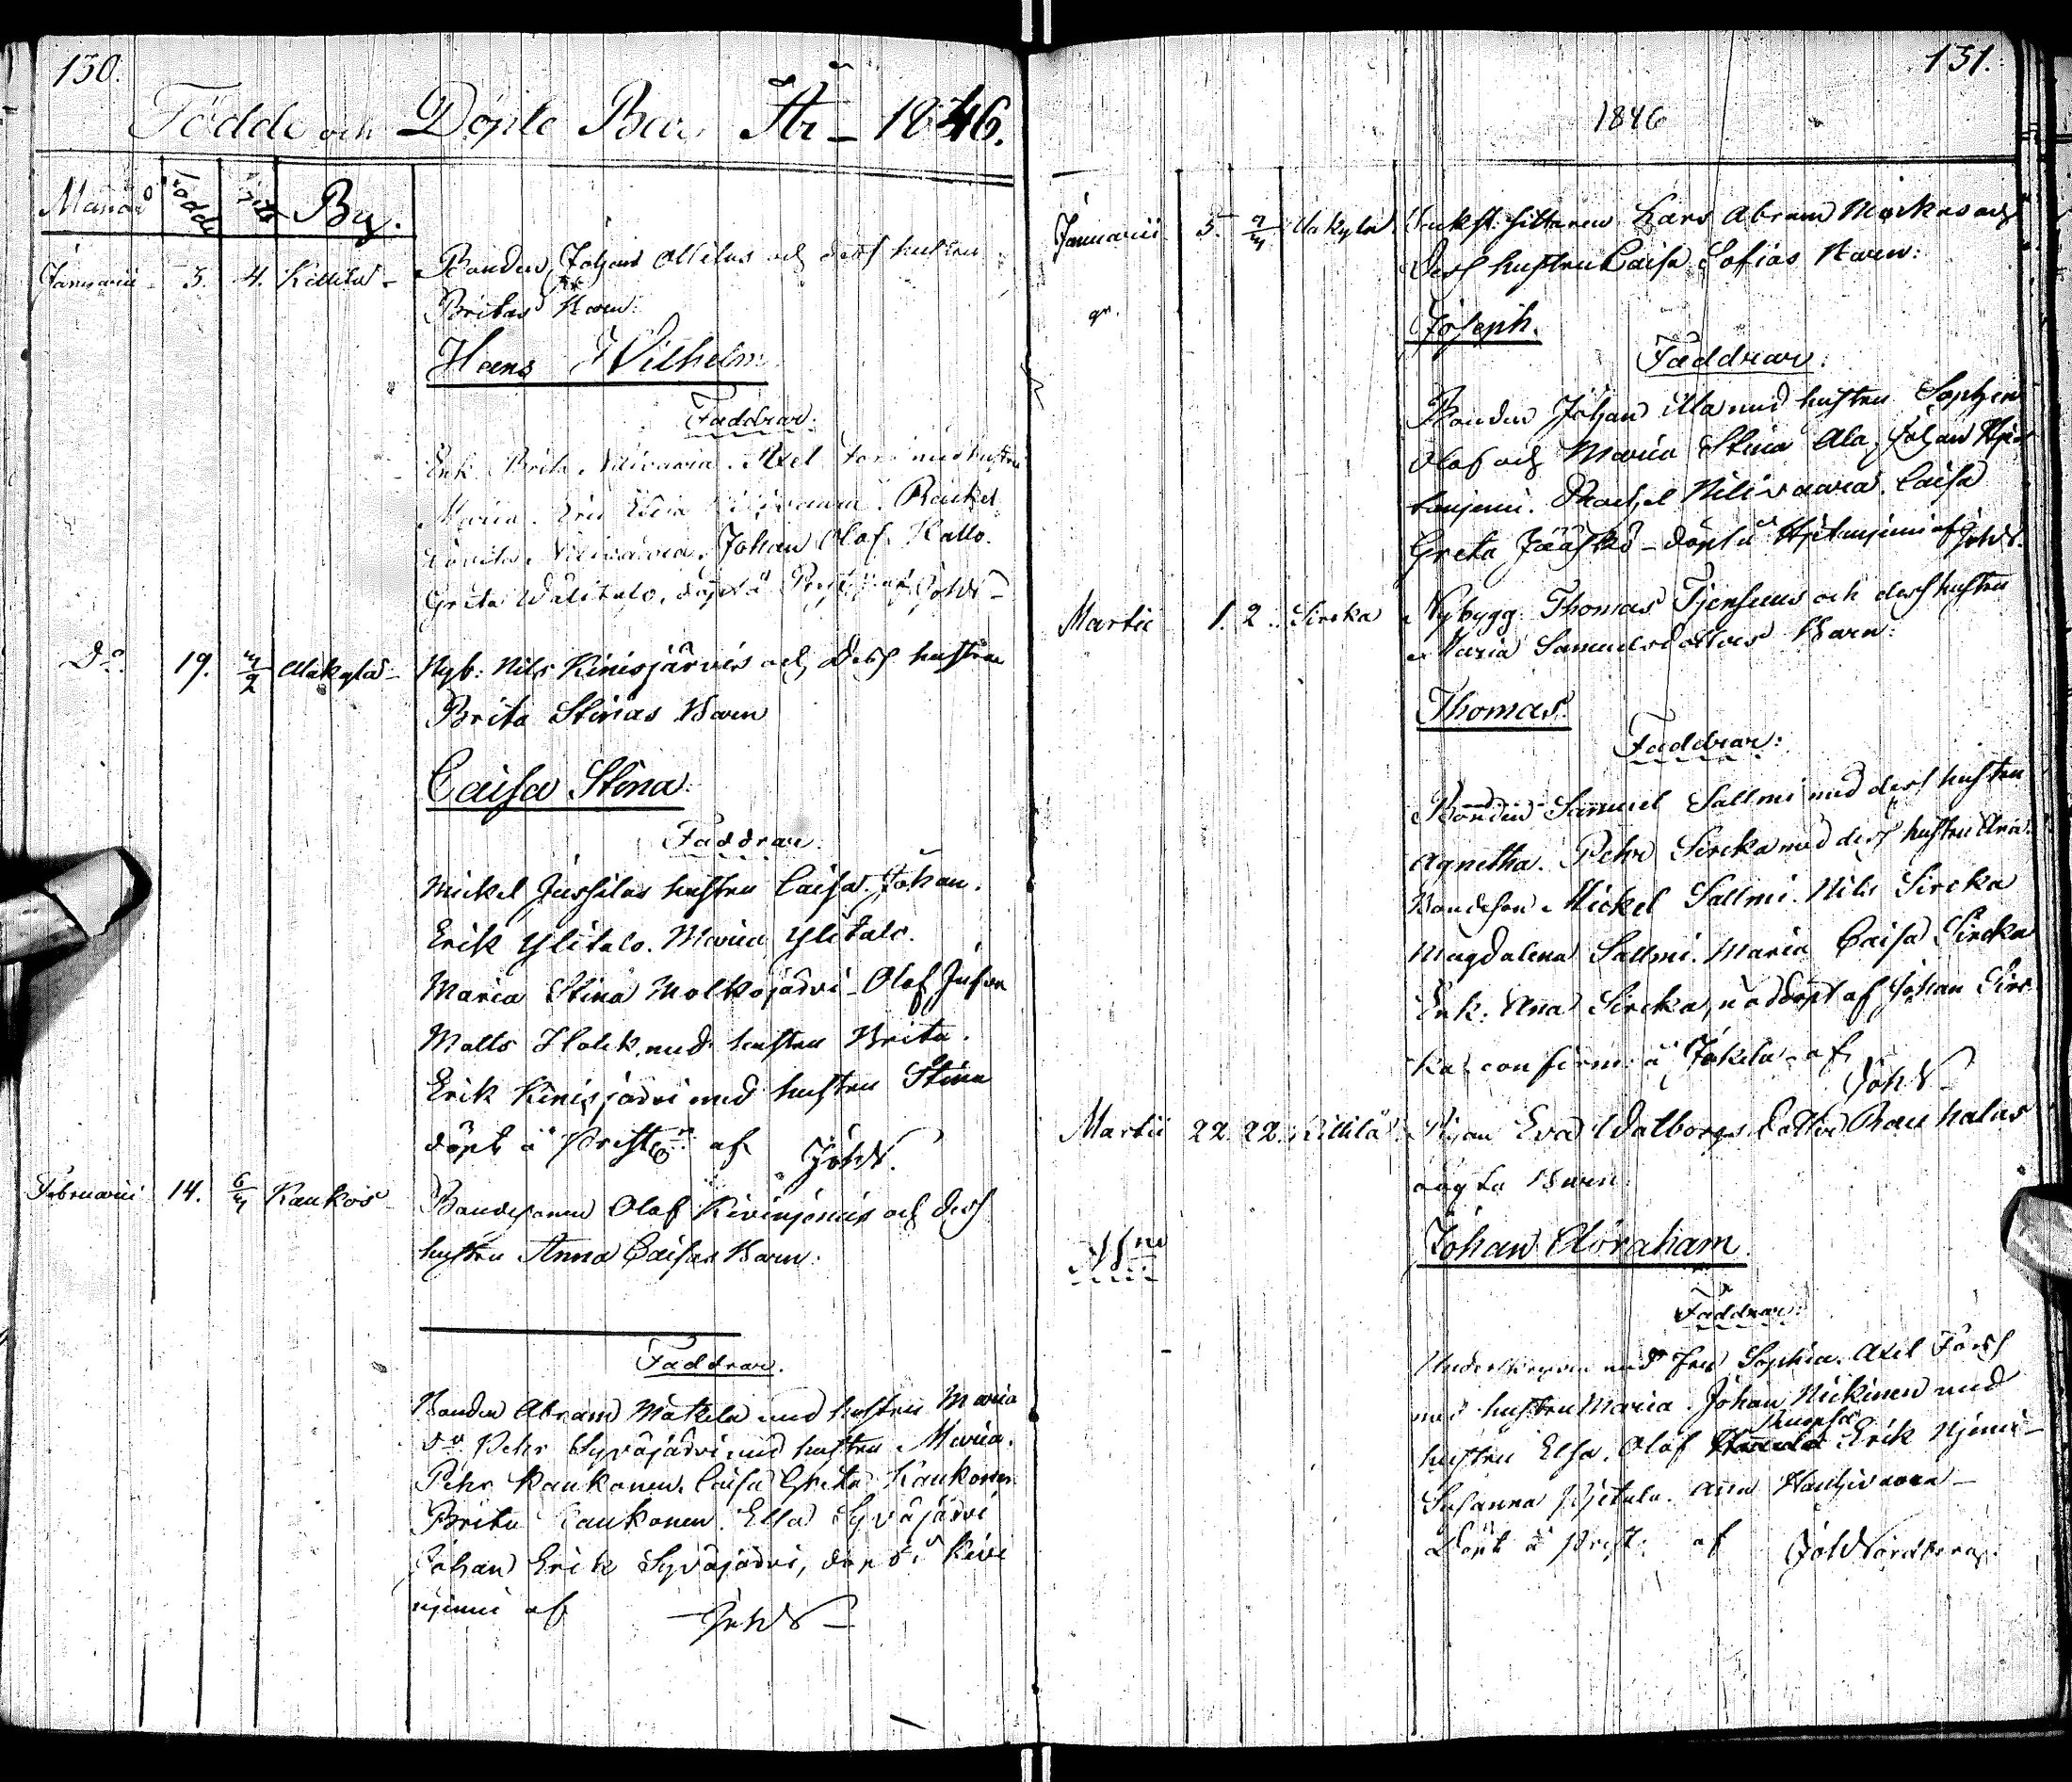 130.
Födde och Döpte Barn År – 1846.
Månad Födde Döpte By.
Januarii 3. 4. Kittilä – Bonden Johans Ollilas och dess hustru
Britas Barn:
Hans Wilhelm
Faddrar:
Enk. Brita Nilivaara. Axel Fors med hustru
Maria. Eric Elia Nilivaara. Rackel
Nilivaara. Johan Olof Kallo.
Greta Wälitalo, döpt å Prest af JohN –
Do. 19. 4/2 Alakylä – Nyb: Nils Kinisjärvis och Dess hustru
Brita Stinas Barn
Caisa Stina
Faddrar.
Mickel Jussilas hustru Caisa. Johan.
Erik Ylitalo. Maria Ylitalo.
Maria Stina Molkojärvi – Olof
Matts med hustru Brita.
Erik Kinisjärvi med hustru Stina
döpt å Prestg:n af JohN.
Februarii 14. 6/4 Kaukois – Bondesonen Olof Kivinjemis och Dess
hustru Anna Caisas Barn:
Faddrar.
Bonden Abram Mäkelä med hustru Maria
Do Pehr Syväjärvi med hustru Maria.
Pehr Kaukonen. Caisa Greta Kaukonen
Brita Kaukonen. Ella Syväjärvi
Johan Erik Syväjärvi, döpt i Kivi
njemi af JohN –
131.
1846
Januarii 5. 9/4 Alakylä. Lars Abram Markus och
Dess hustru Caisa Sofias Barn:
Joseph.
Faddrar:
Bonden Johan Ala med hustru Sophia
Olof och Maria Stina Ala. Johan Hje
tanjemi. Rachel Nilivaara. Caisa
Greta Jääskö – döpt å Hjetanjemi af JohN.
Martii 1. 2. Sircka Nybygg: Thomas och dess hustru
Maria Samuelsdotters Barn:
Thomas.
Faddrar:
Bonden Samuel Sallmi med dess hustru
Agnetha. Pehr Sircka med dess hustru
Bondeson Mickel Sallmi. Nils Sircka
Magdalena Sallmi. Maria Caisa Sircka
Enk. Ana Sircka, nöddöpt af Johan Sirc
ka confirm: å Jokela af
JohN –
Martii 22. 22. Kittilä Pigan Eva Walborgs Dotter Rauhalas
oägta Barn:
Johan Abraham
Faddrar:
Undertecknan med Fru Sophia. Axel Forss
med hustru Maria. Johan Nickinen med
hustru Elsa. Olof Erik Njemi –
Susanna Pjetala. Anna Hanhivaara –
Döpt å Prest: af Joh Nordberg.